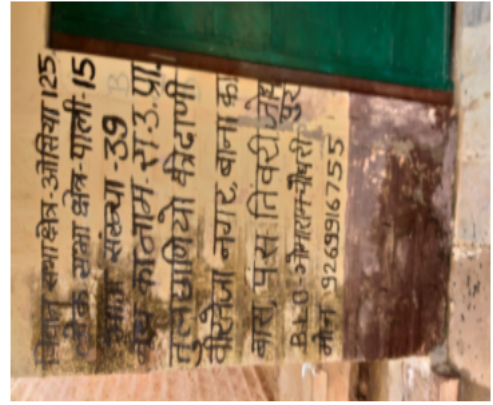 विधान सभा क्षेत्र-ओसिया 125
लोक सभा क्षेत्र-पाली-15
भाग संख्या-39
बुथ का नाम-रा.उ.प्रा.
की ढाणी
वीरतेजा नगर, बाना का
बास, पं.स. तिवरी, जोध
पुर
BLO-भोमाराम चौधरी
मोन 9269916755